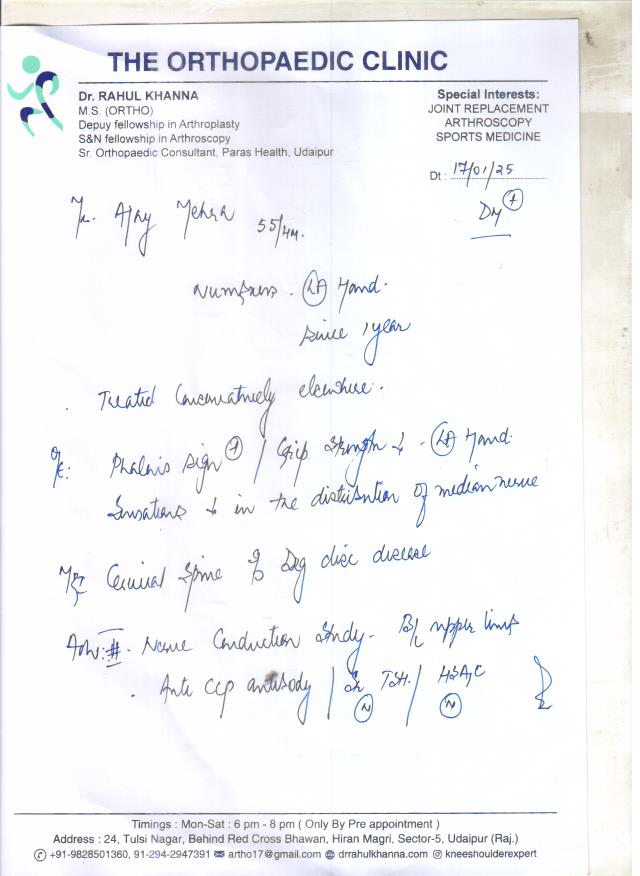 THE ORTHOPAEDIC CLINIC
Dr. RAHUL KHANNA
M.S. (ORTHO)
Depuy fellowship in Arthroplasty
S&N fellowship in Arthroscopy
Sr. Orthopaedic Consultant, Paras Health, Udaipur
Special Interests:
JOINT REPLACEMENT
ARTHROSCOPY
SPORTS MEDICINE
Dt : 17/01/25
DM +
Mr. Ajay Mehra 55/M.
Numbness. Lt Hand.
Since 1 year
Treated Conservatively elsewhere.
O/E: Phalen's sign + / Grip strength ↓. Lt Hand.
Sensations ↓ in the distribution of median nerve
MRI Cervical Spine S/o Deg disc disease
Adv: #. Nerve Conduction Study - B/L upper limb
. Anti CCP antibody / Sr TSH. / HbA1C
N N
Timings : Mon-Sat : 6 pm - 8 pm ( Only By Pre appointment )
Address : 24, Tulsi Nagar, Behind Red Cross Bhawan, Hiran Magri, Sector-5, Udaipur (Raj.)
+91-9828501360, 91-294-2947391 artho17@gmail.com drrahulkhanna.com kneeshoulderexpert